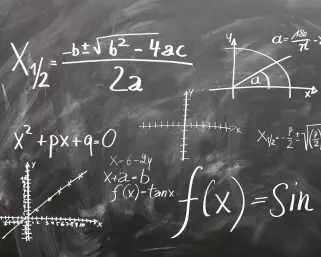 X₁/₂ = -b±√b²-4ac / 2a
y
a
x
a = /π
x² + px + q = 0
y
x
X₁/₂ = -p/2 ±
x = 6 - 2y
x + a = b
f(x) = tan x
y
x
f(x) = Sin